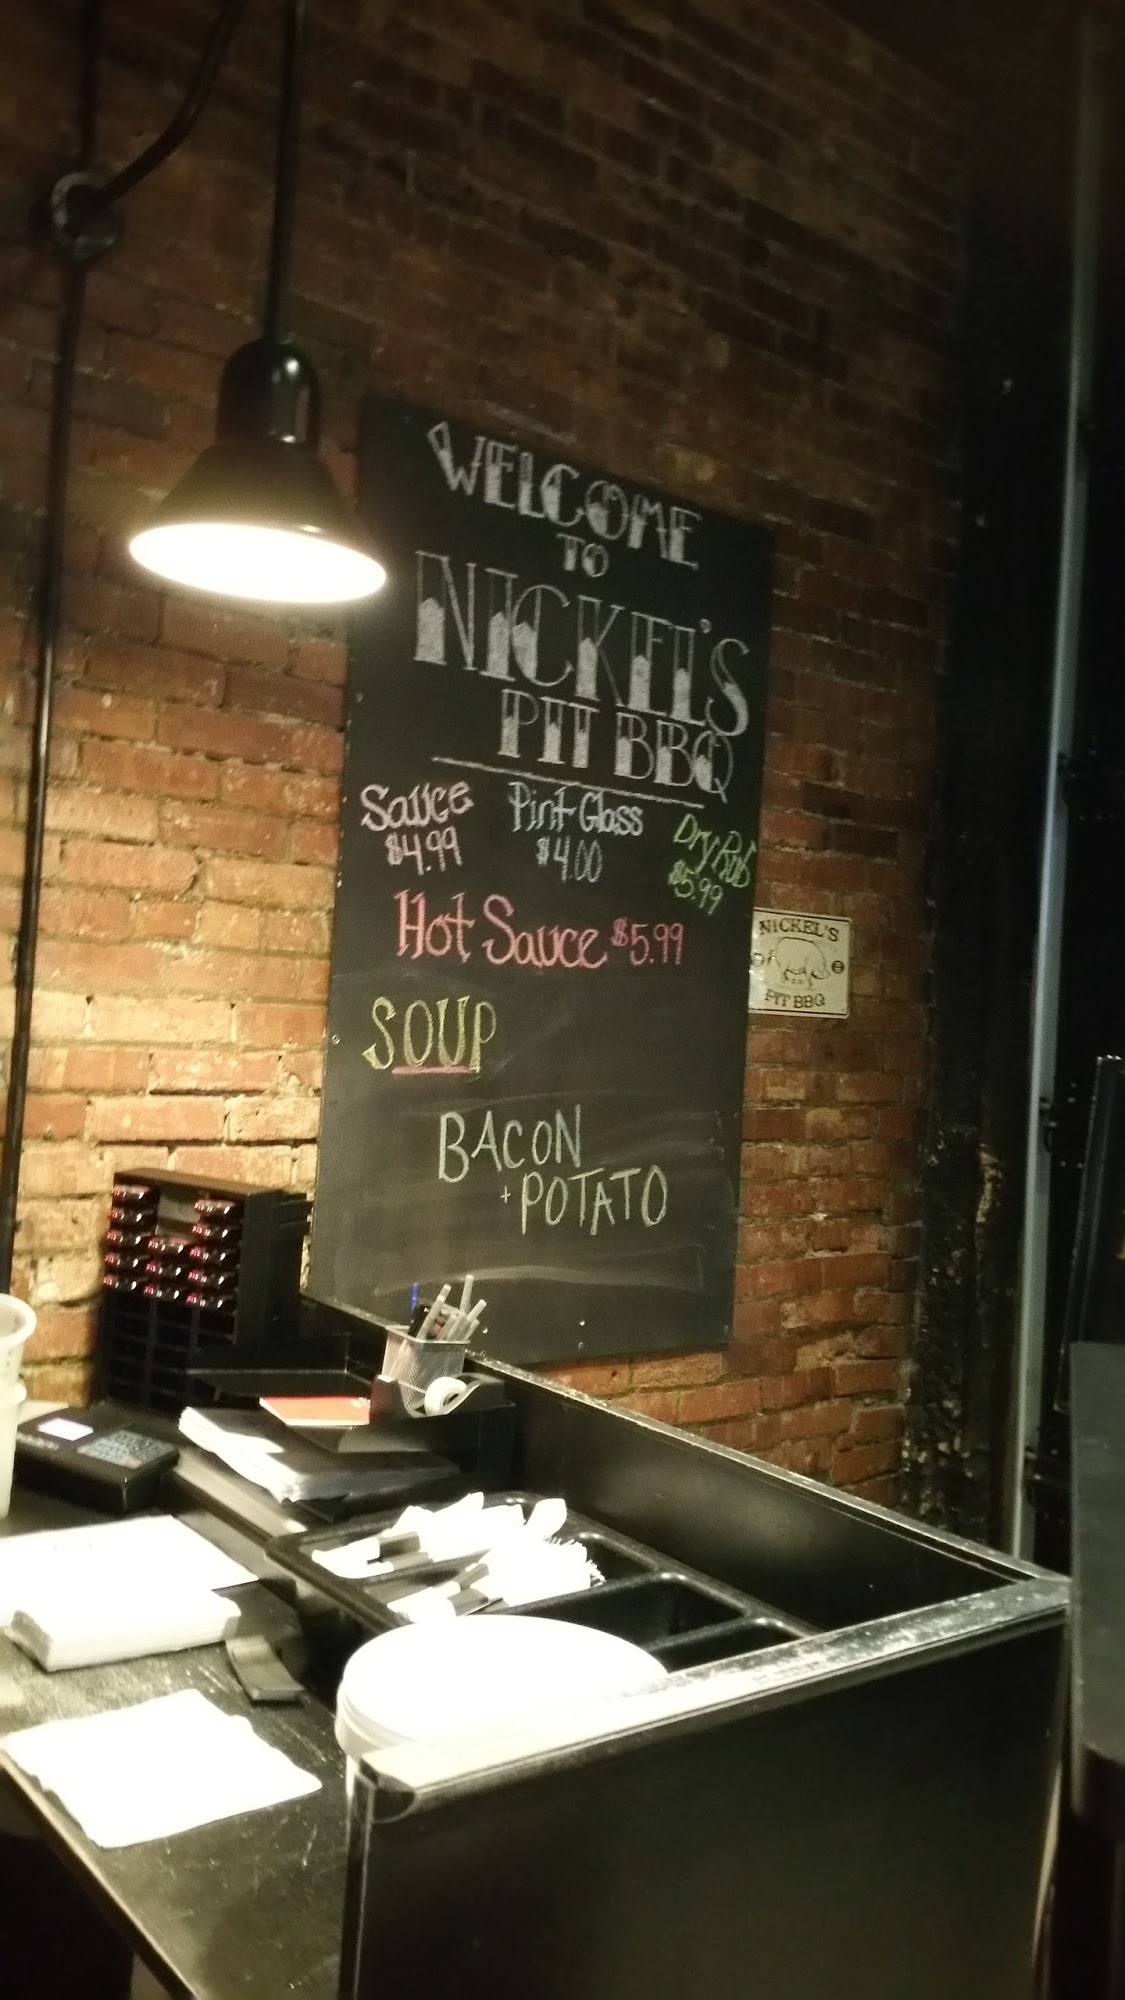 WELCOME
TO
NICKEL'S
PIT BBQ
Sauce
$4.99
Pint Glass
$4.00
Dry Rub
$5.99
Hot Sauce $5.99
SOUP
BACON
+ POTATO
NICKEL'S
PIT BBQ